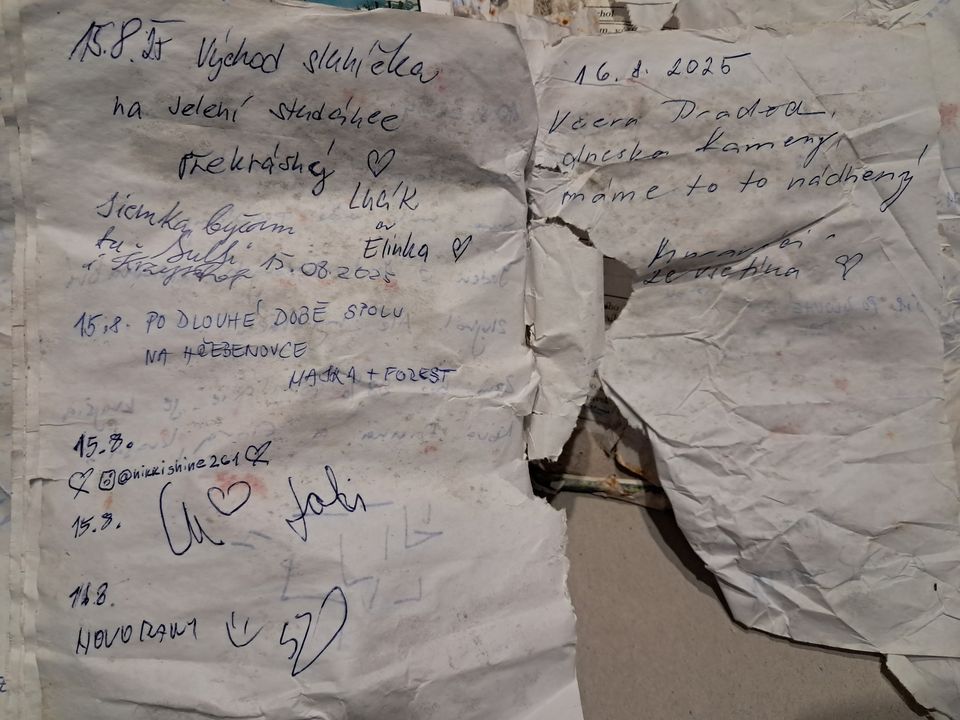 15.8.25 Východ sluníčka
na Jelení studánce
Překrásný ♡
Lucík
a
Elinka ♡
tu
i Krzysztof 15.08.2025
15.8. PO DLOUHÉ DOBĚ SPOLU
NA HŘEBENOVCE
MAJKA + FOREST
15.8.
♡ @nikkishine261 ♡
15.8. ♡ Jaki
16.8.
16.8. 2025
Včera Praděd,
dneska Kameny,
máme to to nádherný
ze Vsetína ♡